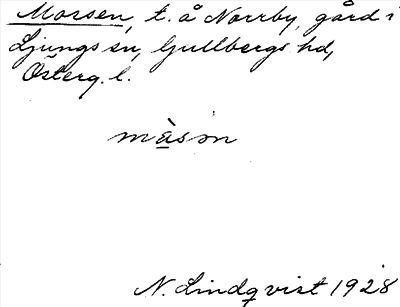 Morsen, t. å Norrby, gård i
Ljungs sn, Gullbergs hd,
Österg. l.
mà̱sɔn
N. Lindqvist 1928